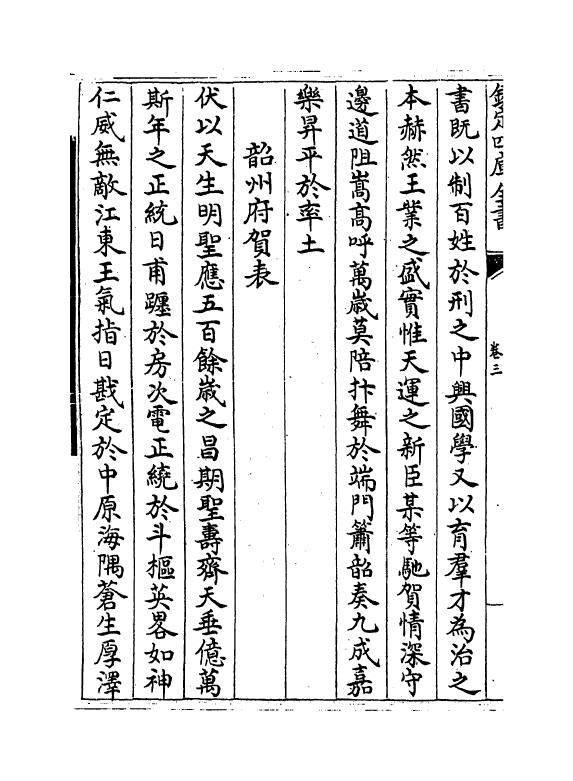 欽定四庫全書
卷三
書既以制百姓於刑之中興國學又以育羣才為治之
本赫然王業之盛實惟天運之新臣某等馳賀情深守
邊道阻嵩高呼萬歲莫陪抃舞於端門簫韶奏九成嘉
樂昇平於率土
韶州府賀表
伏以天生明聖應五百餘歲之昌期聖壽齊天垂億萬
斯年之正統日甫躔於房次電正繞於斗樞英畧如神
仁威無敵江東王氣指日戡定於中原海隅蒼生厚澤